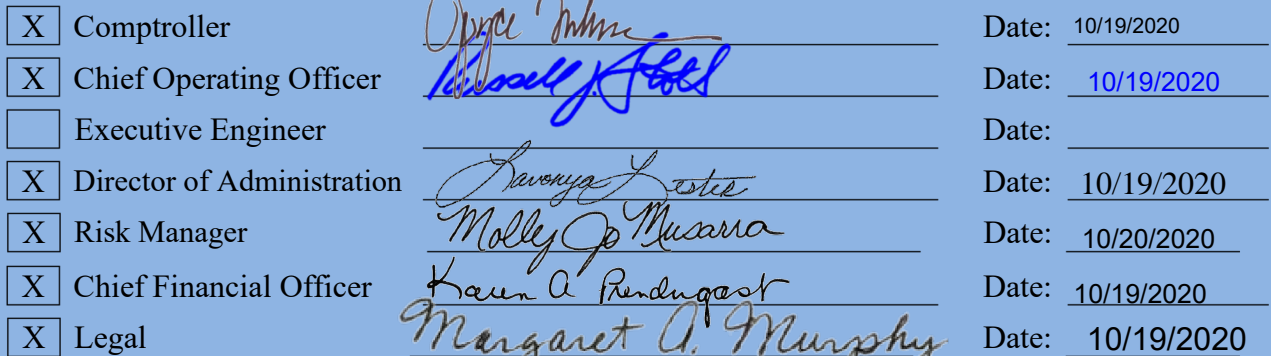 X Comptroller Date: 10/19/2020
X Chief Operating Officer Russell J. Stoll Date: 10/19/2020
Executive Engineer Date:
X Director of Administration Lavonya Lester Date: 10/19/2020
X Risk Manager Molly Jo Musarra Date: 10/20/2020
X Chief Financial Officer Karen A Prendergast Date: 10/19/2020
X Legal Margaret A. Murphy Date: 10/19/2020